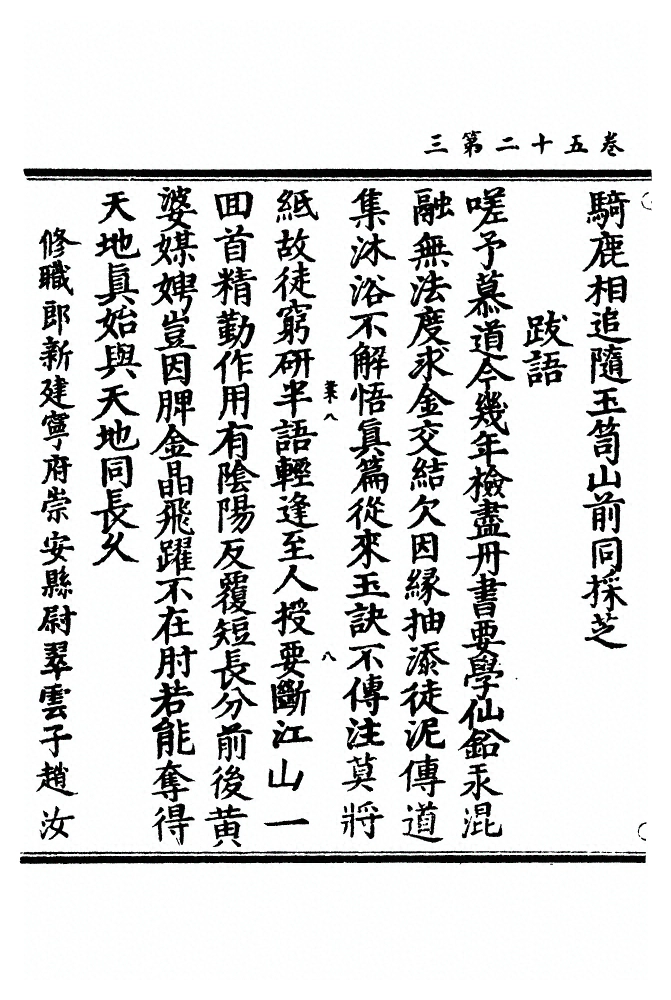 卷五十二第三
騎鹿相追隨玉笥山前同採芝
跋語
嗟予慕道今幾年檢盡丹書要學仙鉛汞混
融無法度求金交結欠因緣抽添徒泥傳道
集沐浴不解悟眞篇從來玉訣不傳注莫將
業八
八
紙故徒窮研半語輕逢至人授要斷江山一
囬首精勤作用有陰陽反覆短長分前後黃
婆媒娉豈因脾金晶飛躍不在肘若能奪得
天地眞始與天地同長久
修職郎新建寧府崇安縣尉翠雲子趙汝